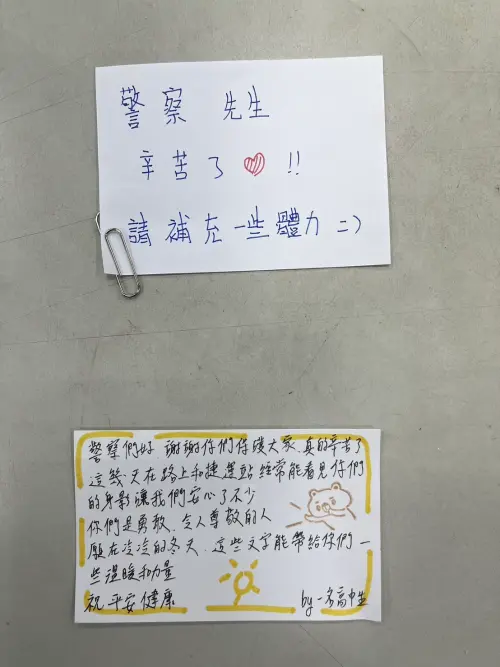 警察 先生
辛苦了 !!
請補充一些體力 =)
警察們好 謝謝你們保護大家、真的辛苦了
這幾天在路上和捷運站經常能看見你們
的身影讓我們安心了不少
你們是勇敢、令人尊敬的人
願在冷冷的冬天、這些文字能帶給你們一
些溫暖和力量
祝 平安 健康
by 一名高中生